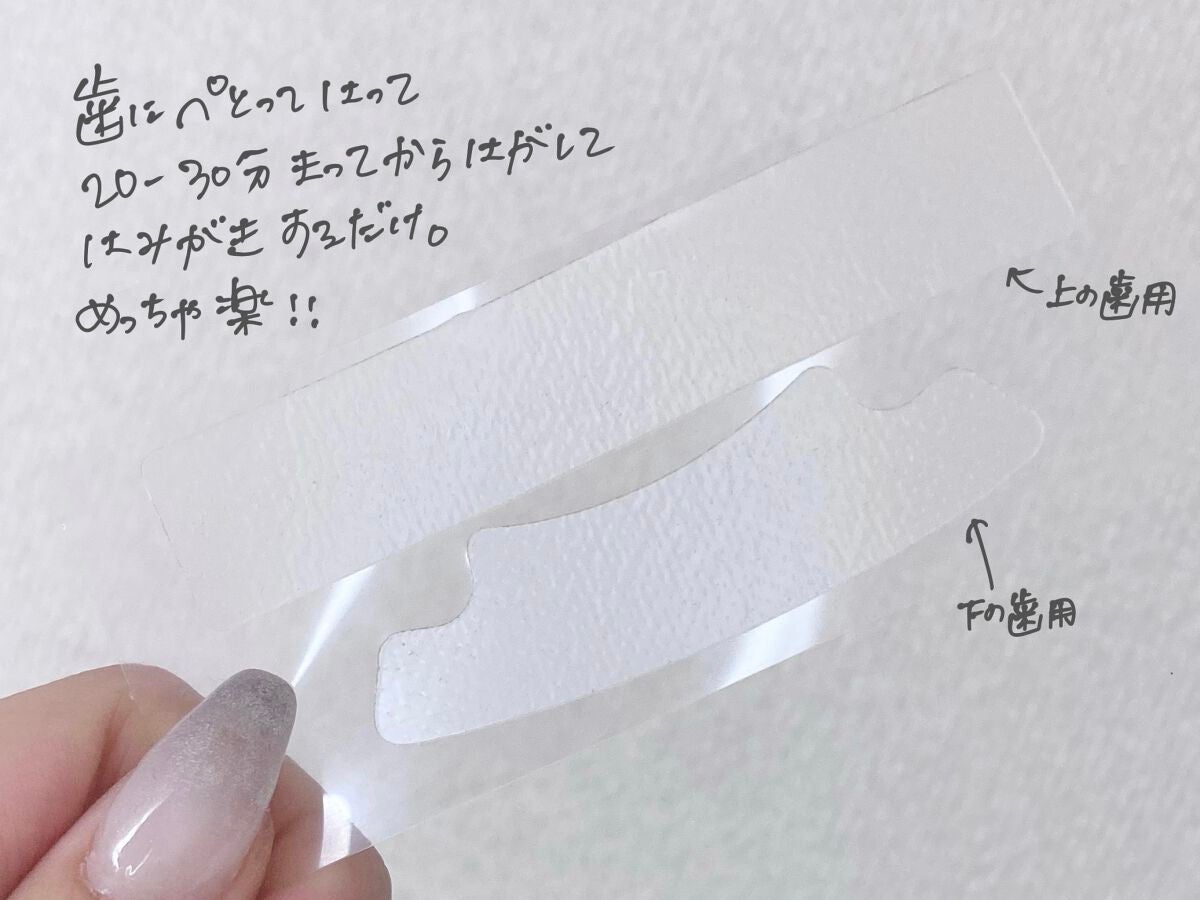 歯にペとってはって
20-30分まってからはがして
はみがきするだけ。
めっちゃ楽!!
←上の歯用
↑
下の歯用